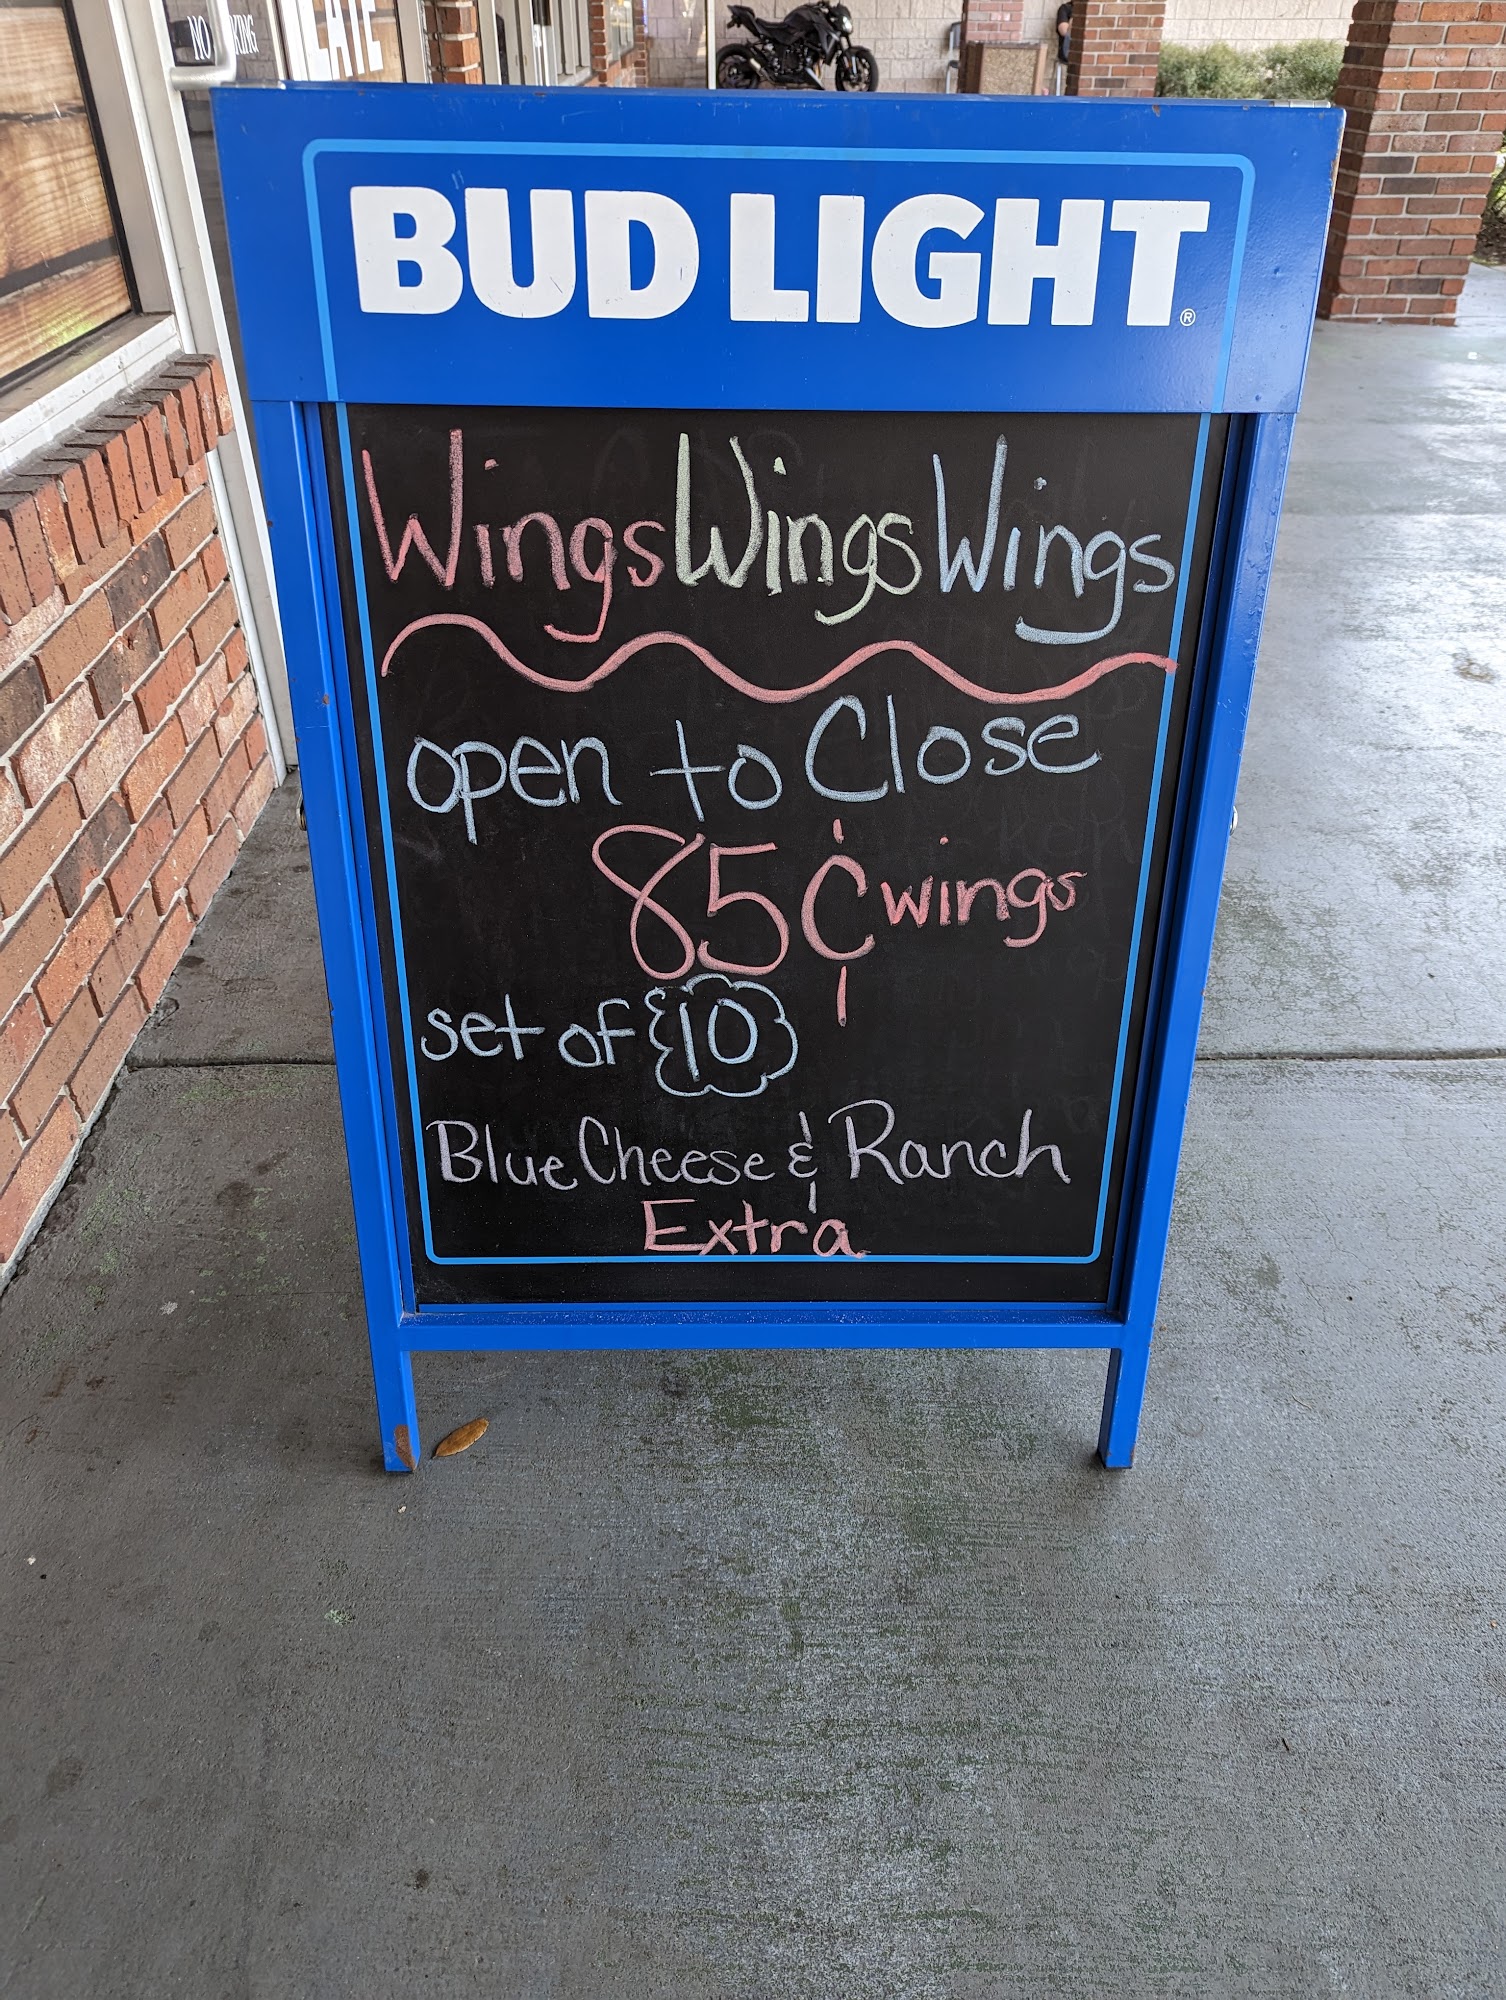 NO
BUD LIGHT®
Wings Wings Wings
open to Close
85¢ wings
set of 10
Blue Cheese & Ranch
Extra